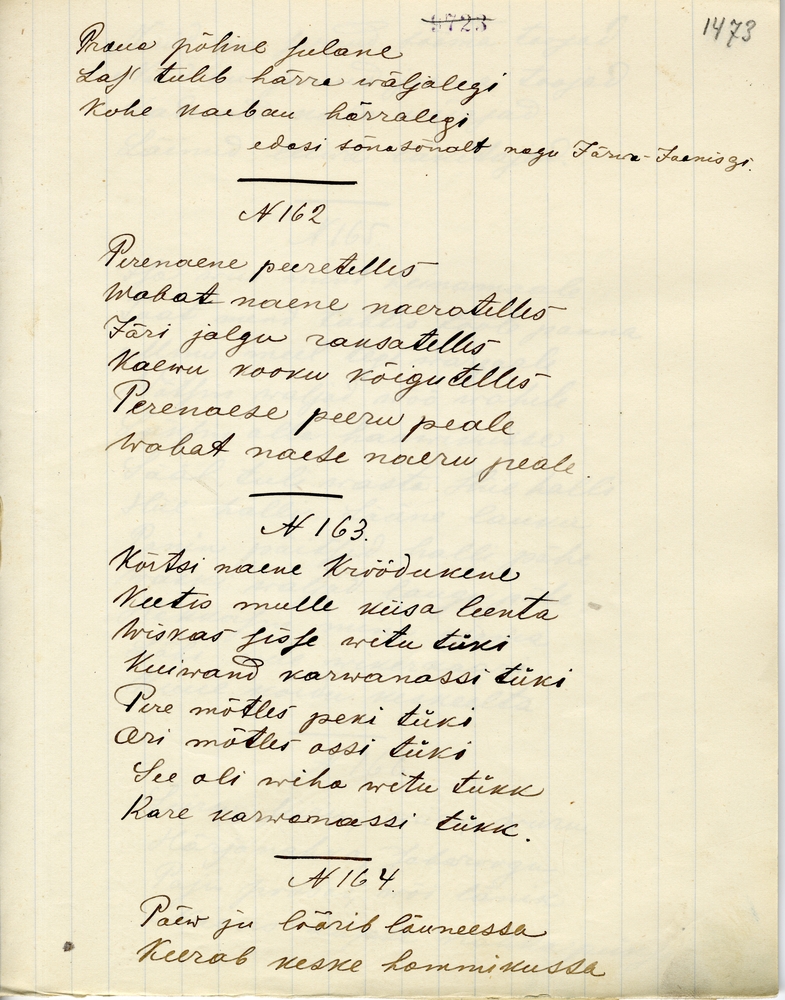 9723
1473
Praua põline sulane
Las tuleb härra wäljalegi
Kohe kaeban härralegi
edasi sõnasõnalt nagu Järwa-Jaanisgi.
N 162
Perenaene peeretelles
Wabat naene naeratelles
Järi jalgu rausatelles
Kaewu kooku kõigutelles
Perenaese peeru peale
Wabat naese naeru peale.
N 163.
Kõrtsi naene Kröödukene
Keetis mulle kiisa leenta
Wiskas sisse witu tüki
Kuiwand karwanassi tüki
Pere mõtles peki tüki
Ori mõtles ossi tüki
See oli wiha witu tükk
Kare karwanassi tükk.
N 164.
Päew ju löörib lõuneessa
Keerab keske hommikussa